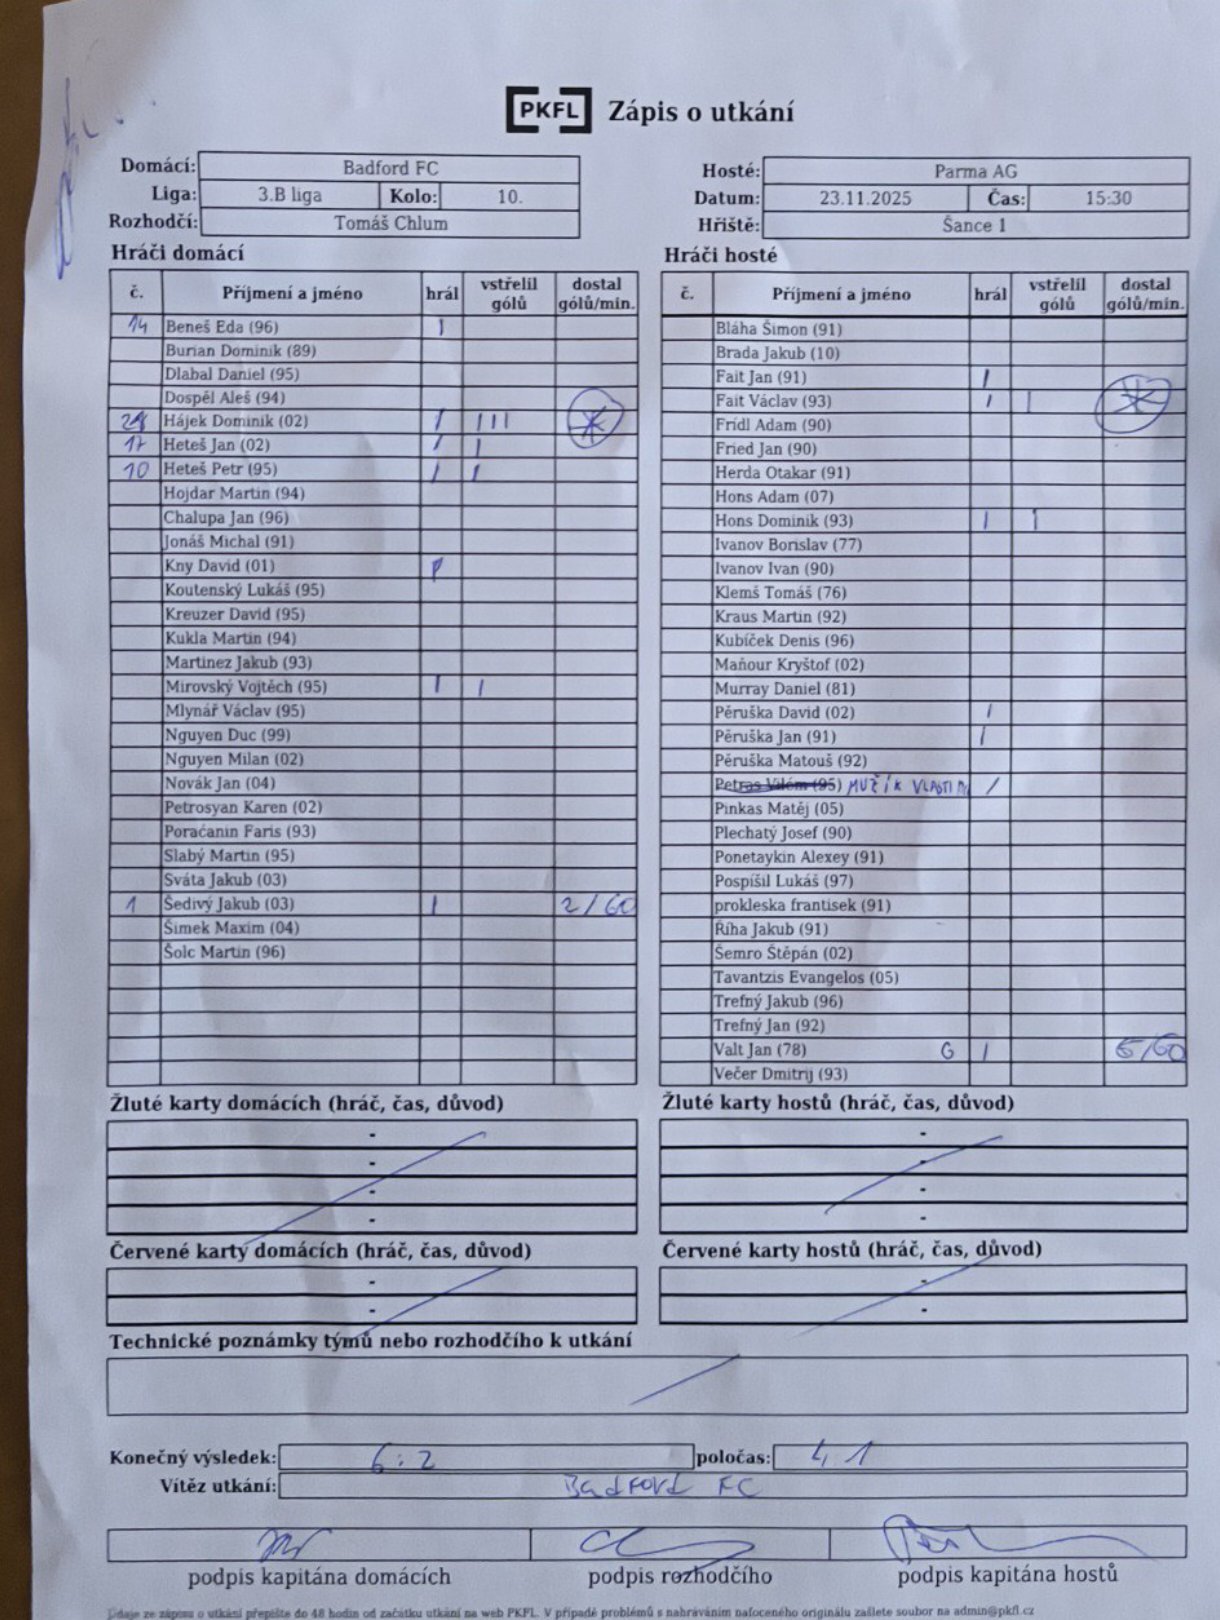 PKFL Zápis o utkání
Domácí: Badford FC
Hosté: Parma AG
Liga: 3.B liga Kolo: 10.
Datum: 23.11.2025 Čas: 15:30
Rozhodčí: Tomáš Chlum
Hřiště: Šance 1
Hráči domácí
č. Příjmení a jméno hrál vstřelil gólů dostal gólů/min.
14 Beneš Eda (96) I
Burian Dominik (89)
Dlabal Daniel (95)
Dospěl Aleš (94)
Hájek Dominik (02) / III
17 Heteš Jan (02) / I
10 Heteš Petr (95) / I
Hojdar Martin (94)
Chalupa Jan (96)
Jonáš Michal (91)
Kny David (01)
Koutenský Lukáš (95)
Kreuzer David (95)
Kukla Martin (94)
Martinez Jakub (93)
Mirovský Vojtěch (95) I I
Mlynář Václav (95)
Nguyen Duc (99)
Nguyen Milan (02)
Novák Jan (04)
Petrosyan Karen (02)
Poraćanin Faris (93)
Slabý Martin (95)
Sváta Jakub (03)
1 Šedivý Jakub (03) I 2/60
Šimek Maxim (04)
Šolc Martin (96)
Hráči hosté
č. Příjmení a jméno hrál vstřelil gólů dostal gólů/min.
Bláha Šimon (91)
Brada Jakub (10)
Fait Jan (91) /
Fait Václav (93) / I
Frídl Adam (90)
Fried Jan (90)
Herda Otakar (91)
Hons Adam (07)
Hons Dominik (93) I I
Ivanov Borislav (77)
Ivanov Ivan (90)
Klemš Tomáš (76)
Kraus Martin (92)
Kubíček Denis (96)
Maňour Kryštof (02)
Murray Daniel (81)
Pěruška David (02) /
Pěruška Jan (91) /
Pěruška Matouš (92)
Petras Vilém (95) MUŽÍK /
Pinkas Matěj (05)
Plechatý Josef (90)
Ponetaykin Alexey (91)
Pospíšil Lukáš (97)
prokleska frantisek (91)
Říha Jakub (91)
Šemro Štěpán (02)
Tavantzis Evangelos (05)
Trefný Jakub (96)
Trefný Jan (92)
Valt Jan (78) G / 6/60
Večer Dmitrij (93)
Žluté karty domácích (hráč, čas, důvod)
-
-
-
-
Žluté karty hostů (hráč, čas, důvod)
-
-
-
-
Červené karty domácích (hráč, čas, důvod)
-
-
Červené karty hostů (hráč, čas, důvod)
-
-
Technické poznámky týmů nebo rozhodčího k utkání
Konečný výsledek: 6:2 poločas: 4,1
Vítěz utkání: Badford FC
podpis kapitána domácích podpis rozhodčího podpis kapitána hostů
Údaje ze zápisu o utkání přepište do 48 hodin od začátku utkání na web PKFL. V případě problémů s nahráváním nafoceného originálu zašlete soubor na admin@pkfl.cz